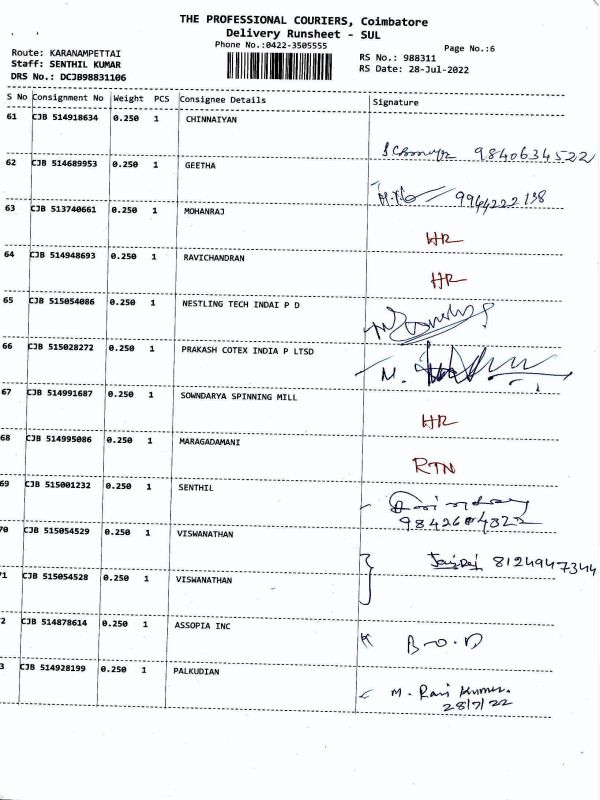 THE PROFESSIONAL COURIERS, Coimbatore
Delivery Runsheet - SUL
Phone No.:0422-3505555
Page No.:6
Route: KARANAMPETTAI
RS No.: 988311
Staff: SENTHIL KUMAR
RS Date: 28-Jul-2022
DRS No.: DCJB98831106
S No Consignment No Weight PCS Consignee Details Signature
61 CJB 514918634 0.250 1 CHINNAIYAN
9840634522
62 CJB 514689953 0.250 1 GEETHA
9964222138
63 CJB 513740661 0.250 1 MOHANRAJ
HR
64 CJB 514948693 0.250 1 RAVICHANDRAN
HR
65 CJB 515054086 0.250 1 NESTLING TECH INDAI P D
66 CJB 515028272 0.250 1 PRAKASH COTEX INDIA P LTSD
M.
67 CJB 514991687 0.250 1 SOWNDARYA SPINNING MILL
HR
68 CJB 514995086 0.250 1 MARAGADAMANI
RTN
69 CJB 515001232 0.250 1 SENTHIL
70 CJB 515054529 0.250 1 VISWANATHAN
8124947344
71 CJB 515054528 0.250 1 VISWANATHAN
2 CJB 514878614 0.250 1 ASSOPIA INC
B-O-D
3 CJB 514928199 0.250 1 PALKUDIAN
M. Ravi Kumar.
28/7/22